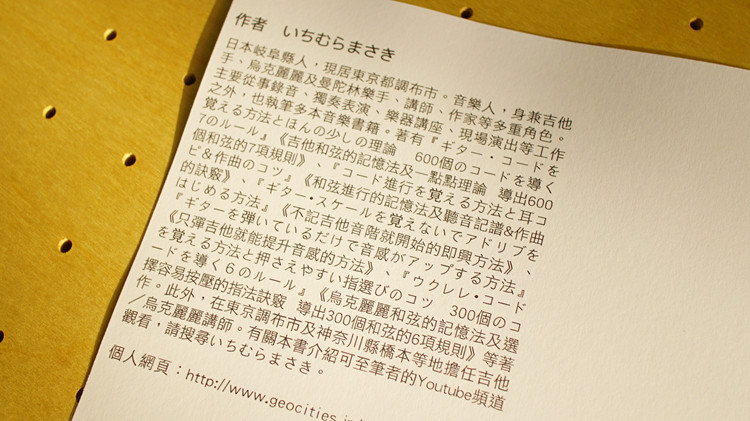 作者　いちむらまさき
日本岐阜縣人，現居東京都調布市。音樂人，身兼吉他
手、烏克麗麗及曼陀林樂手、講師、作家等多重角色。
主要從事錄音、獨奏表演、樂器講座、現場演出等工作
之外，也執筆多本音樂書籍。著有『ギター・コードを
覚える方法とほんの少しの理論　600個のコードを導く
7のルール』《吉他和弦的記憶法及一點點理論　導出600
個和弦的7項規則》、『コード進行を覚える方法と耳コ
ピ&作曲のコツ』《和弦進行的記憶法及聽音記譜&作曲
的訣竅》、『ギター・スケールを覚えないでアドリブを
はじめる方法』《不記吉他音階就開始的即興方法》、
『ギターを弾いているだけで音感がアップする方法』
《只彈吉他就能提升音感的方法》、『ウクレレ・コード
を覚える方法と押さえやすい指選びのコツ　300個のコ
ードを導く６のルール』《烏克麗麗和弦的記憶法及選
擇容易按壓的指法訣竅　導出300個和弦的6項規則》等著
作。此外，在東京調布市及神奈川縣橋本等地擔任吉他
／烏克麗麗講師。有關本書介紹可至筆者的Youtube頻道
觀看，請搜尋いちむらまさき。
個人網頁：http://www.geocities.j